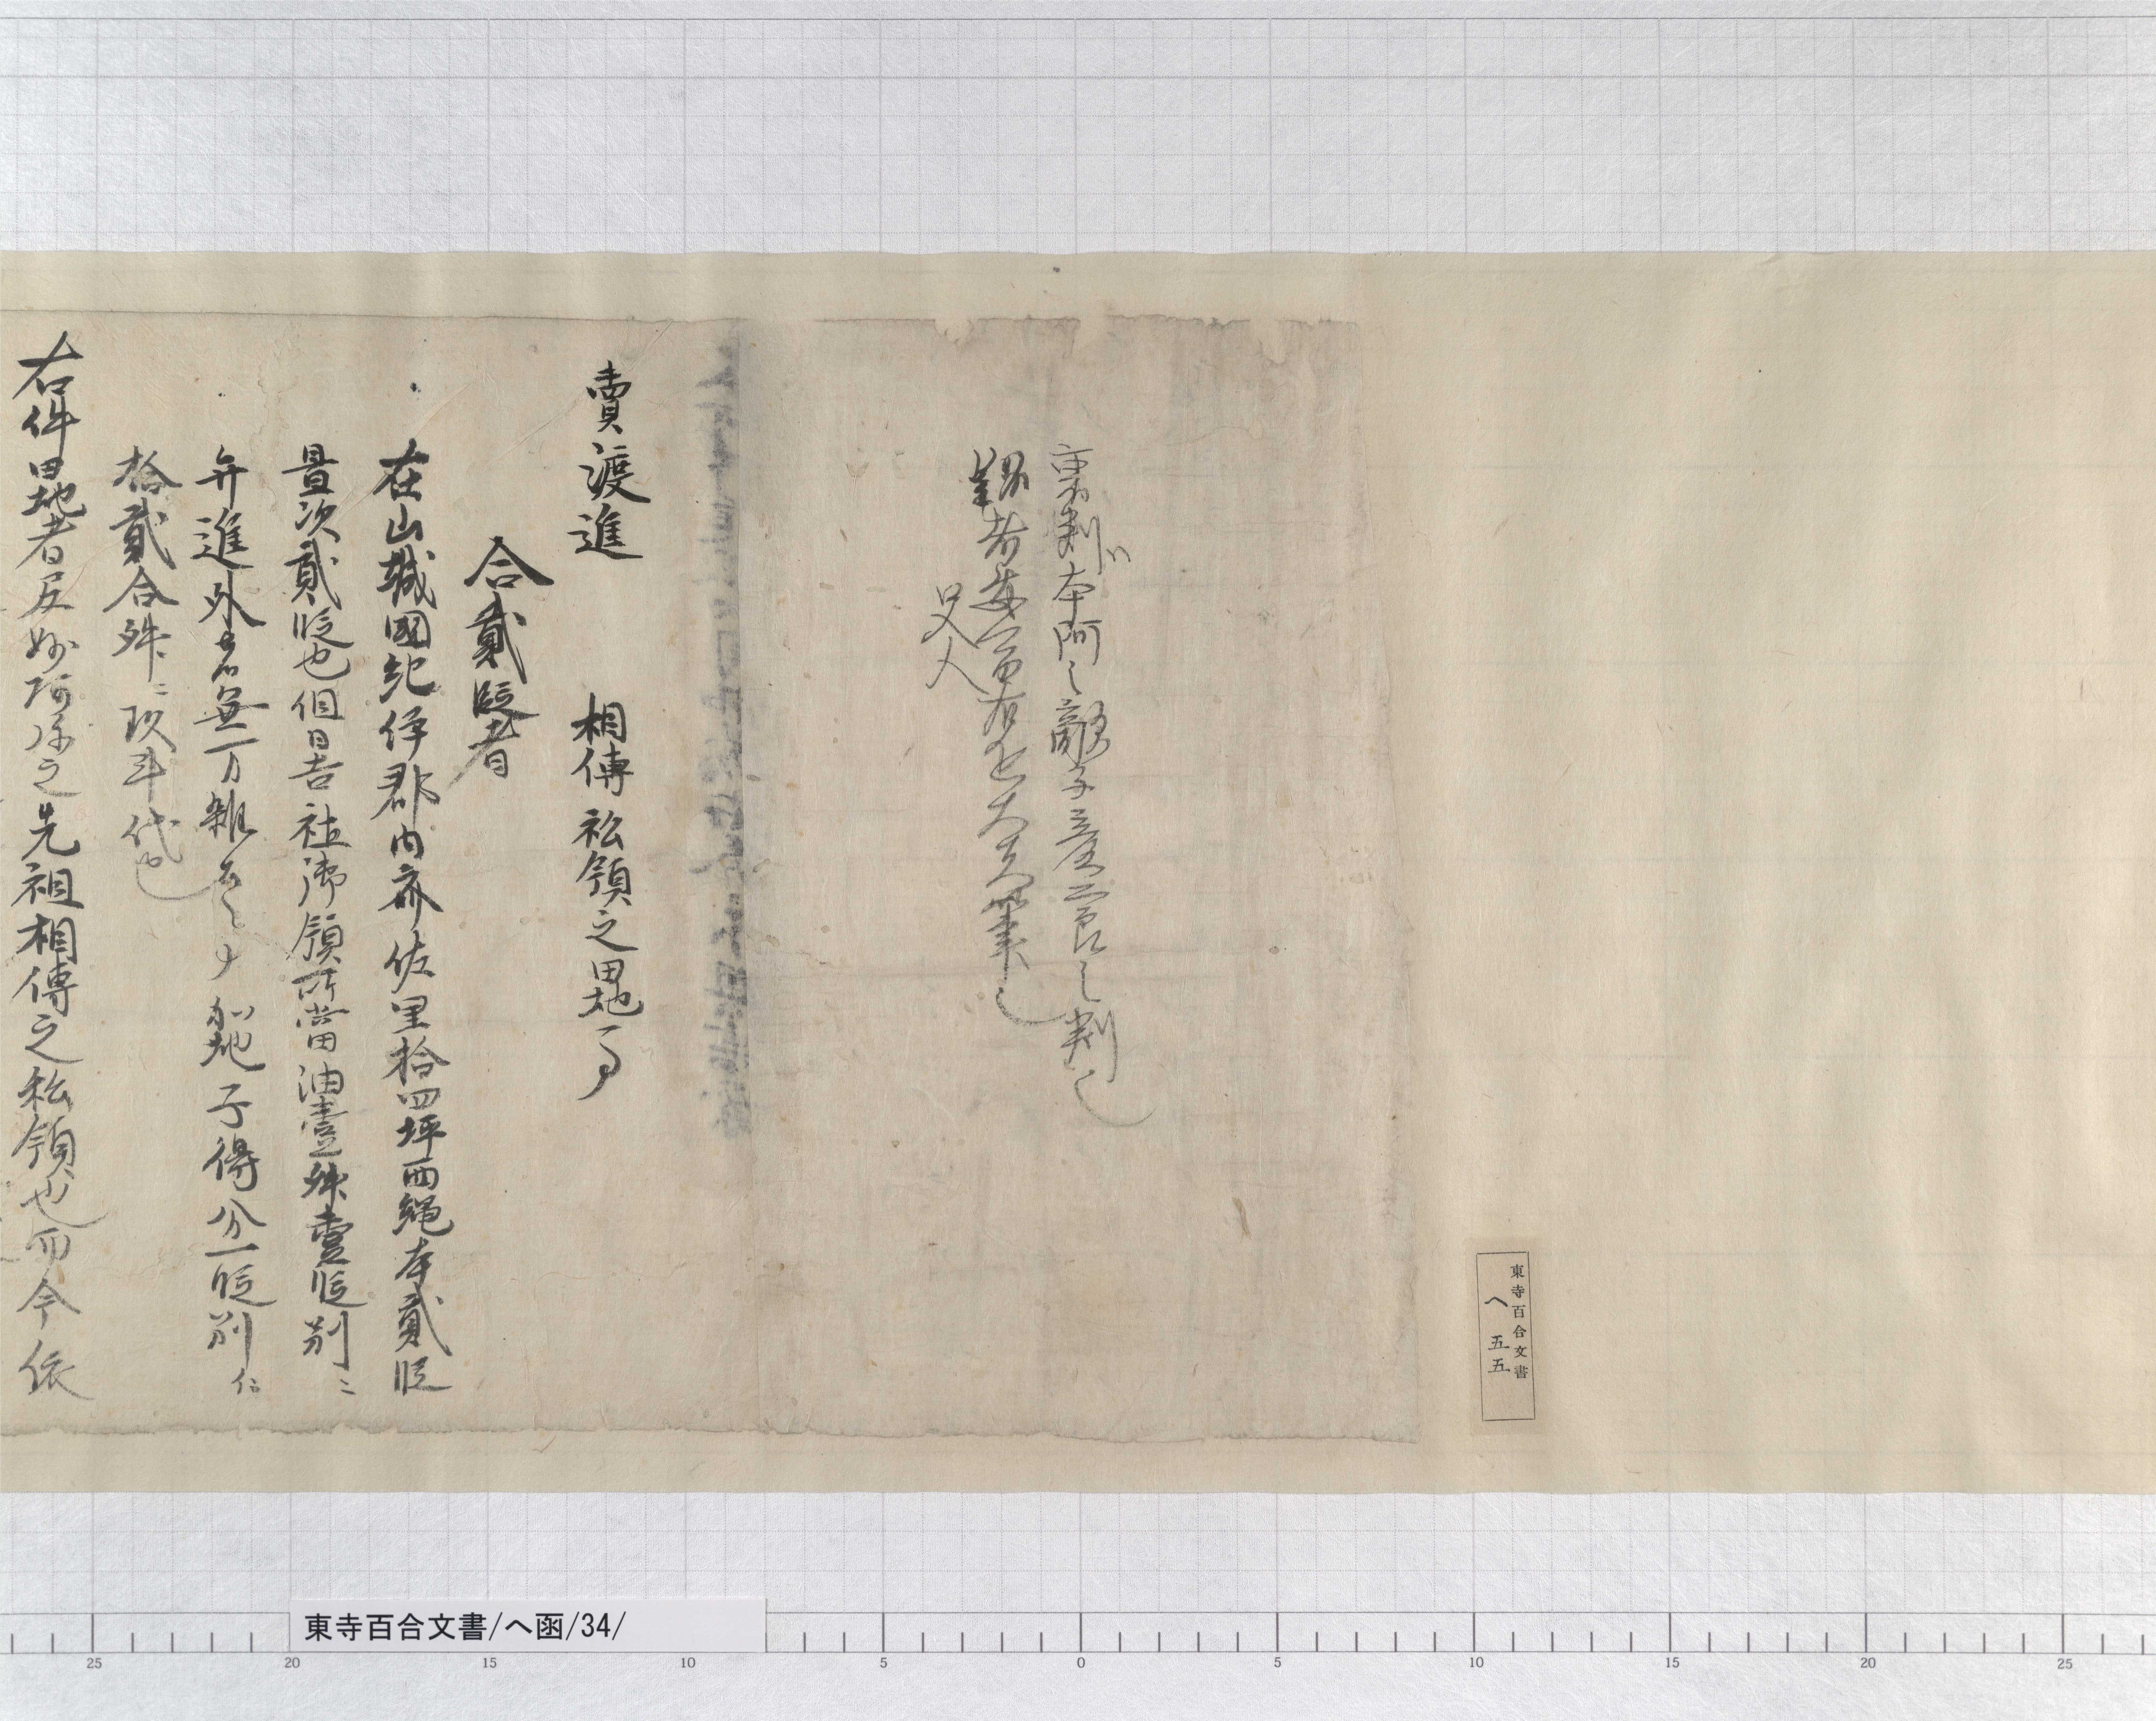 東寺百合文書
ヘ 五五
裏判ハ本阿之敵子彦二郎之判也
又人
賣渡進 相傳私領之田地事
合貳段者
在山城國紀伊郡内斎佐里拾四坪西縄本貳段
畳次貳段也但日吉社御領所當油壹舛壹段別ニ
弁進外者無万雑公事加地子得分一段別仁
拾貳合舛ニ玖斗代也
右件田地者尼妙阿弥之先祖相傳之私領也而今依
東寺百合文書/ヘ函/34/
25 20 15 10 5 0 5 10 15 20 25